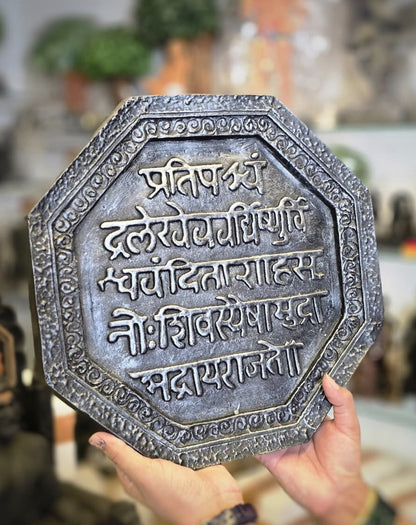 प्रतिपश्चं
द्रलेखेववर्धिष्णुर्वि
श्ववंदिताशाहसू
नोःशिवस्यैषामुद्रा
भद्रायराजते॥